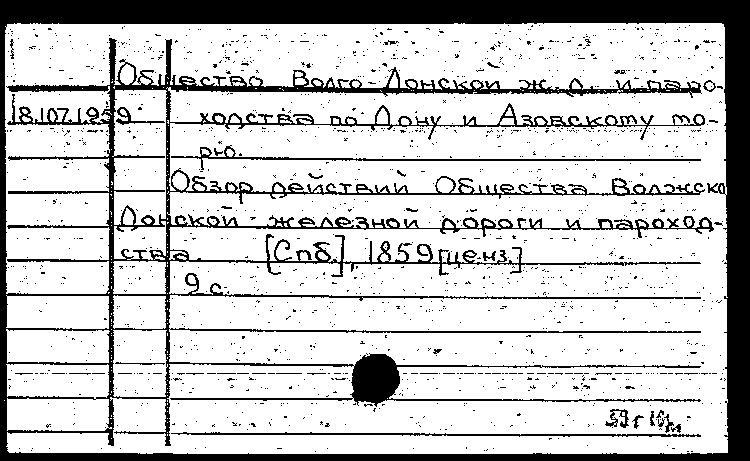 Общество Волго-Донской ж. д. и паро-
18.107.1.959 ходства по Дону и Азовскому мо-
рю.
Обзор действий Общества Волжско
Донской железной дороги и пароход-
ства. [Спб.], 1859 [ценз.]
9 с.